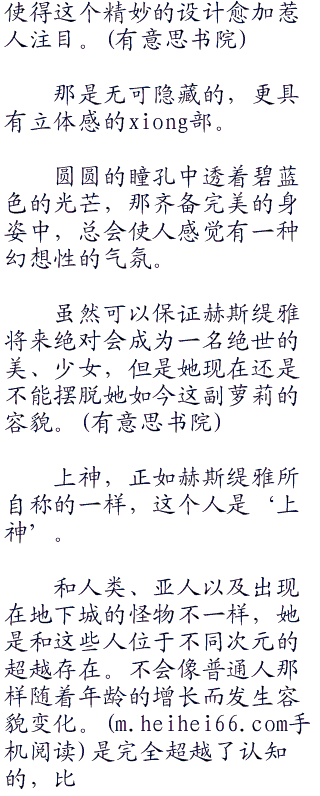 使得这个精妙的设计愈加惹
人注目。(有意思书院)
那是无可隐藏的，更具
有立体感的xiong部。
圆圆的瞳孔中透着碧蓝
色的光芒，那齐备完美的身
姿中，总会使人感觉有一种
幻想性的气氛。
虽然可以保证赫斯缇雅
将来绝对会成为一名绝世的
美、少女，但是她现在还是
不能摆脱她如今这副萝莉的
容貌。(有意思书院)
上神，正如赫斯缇雅所
自称的一样，这个人是‘上
神’。
和人类、亚人以及出现
在地下城的怪物不一样，她
是和这些人位于不同次元的
超越存在。不会像普通人那
样随着年龄的增长而发生容
貌变化。(m.heihei66.com手
机阅读)是完全超越了认知
的，比